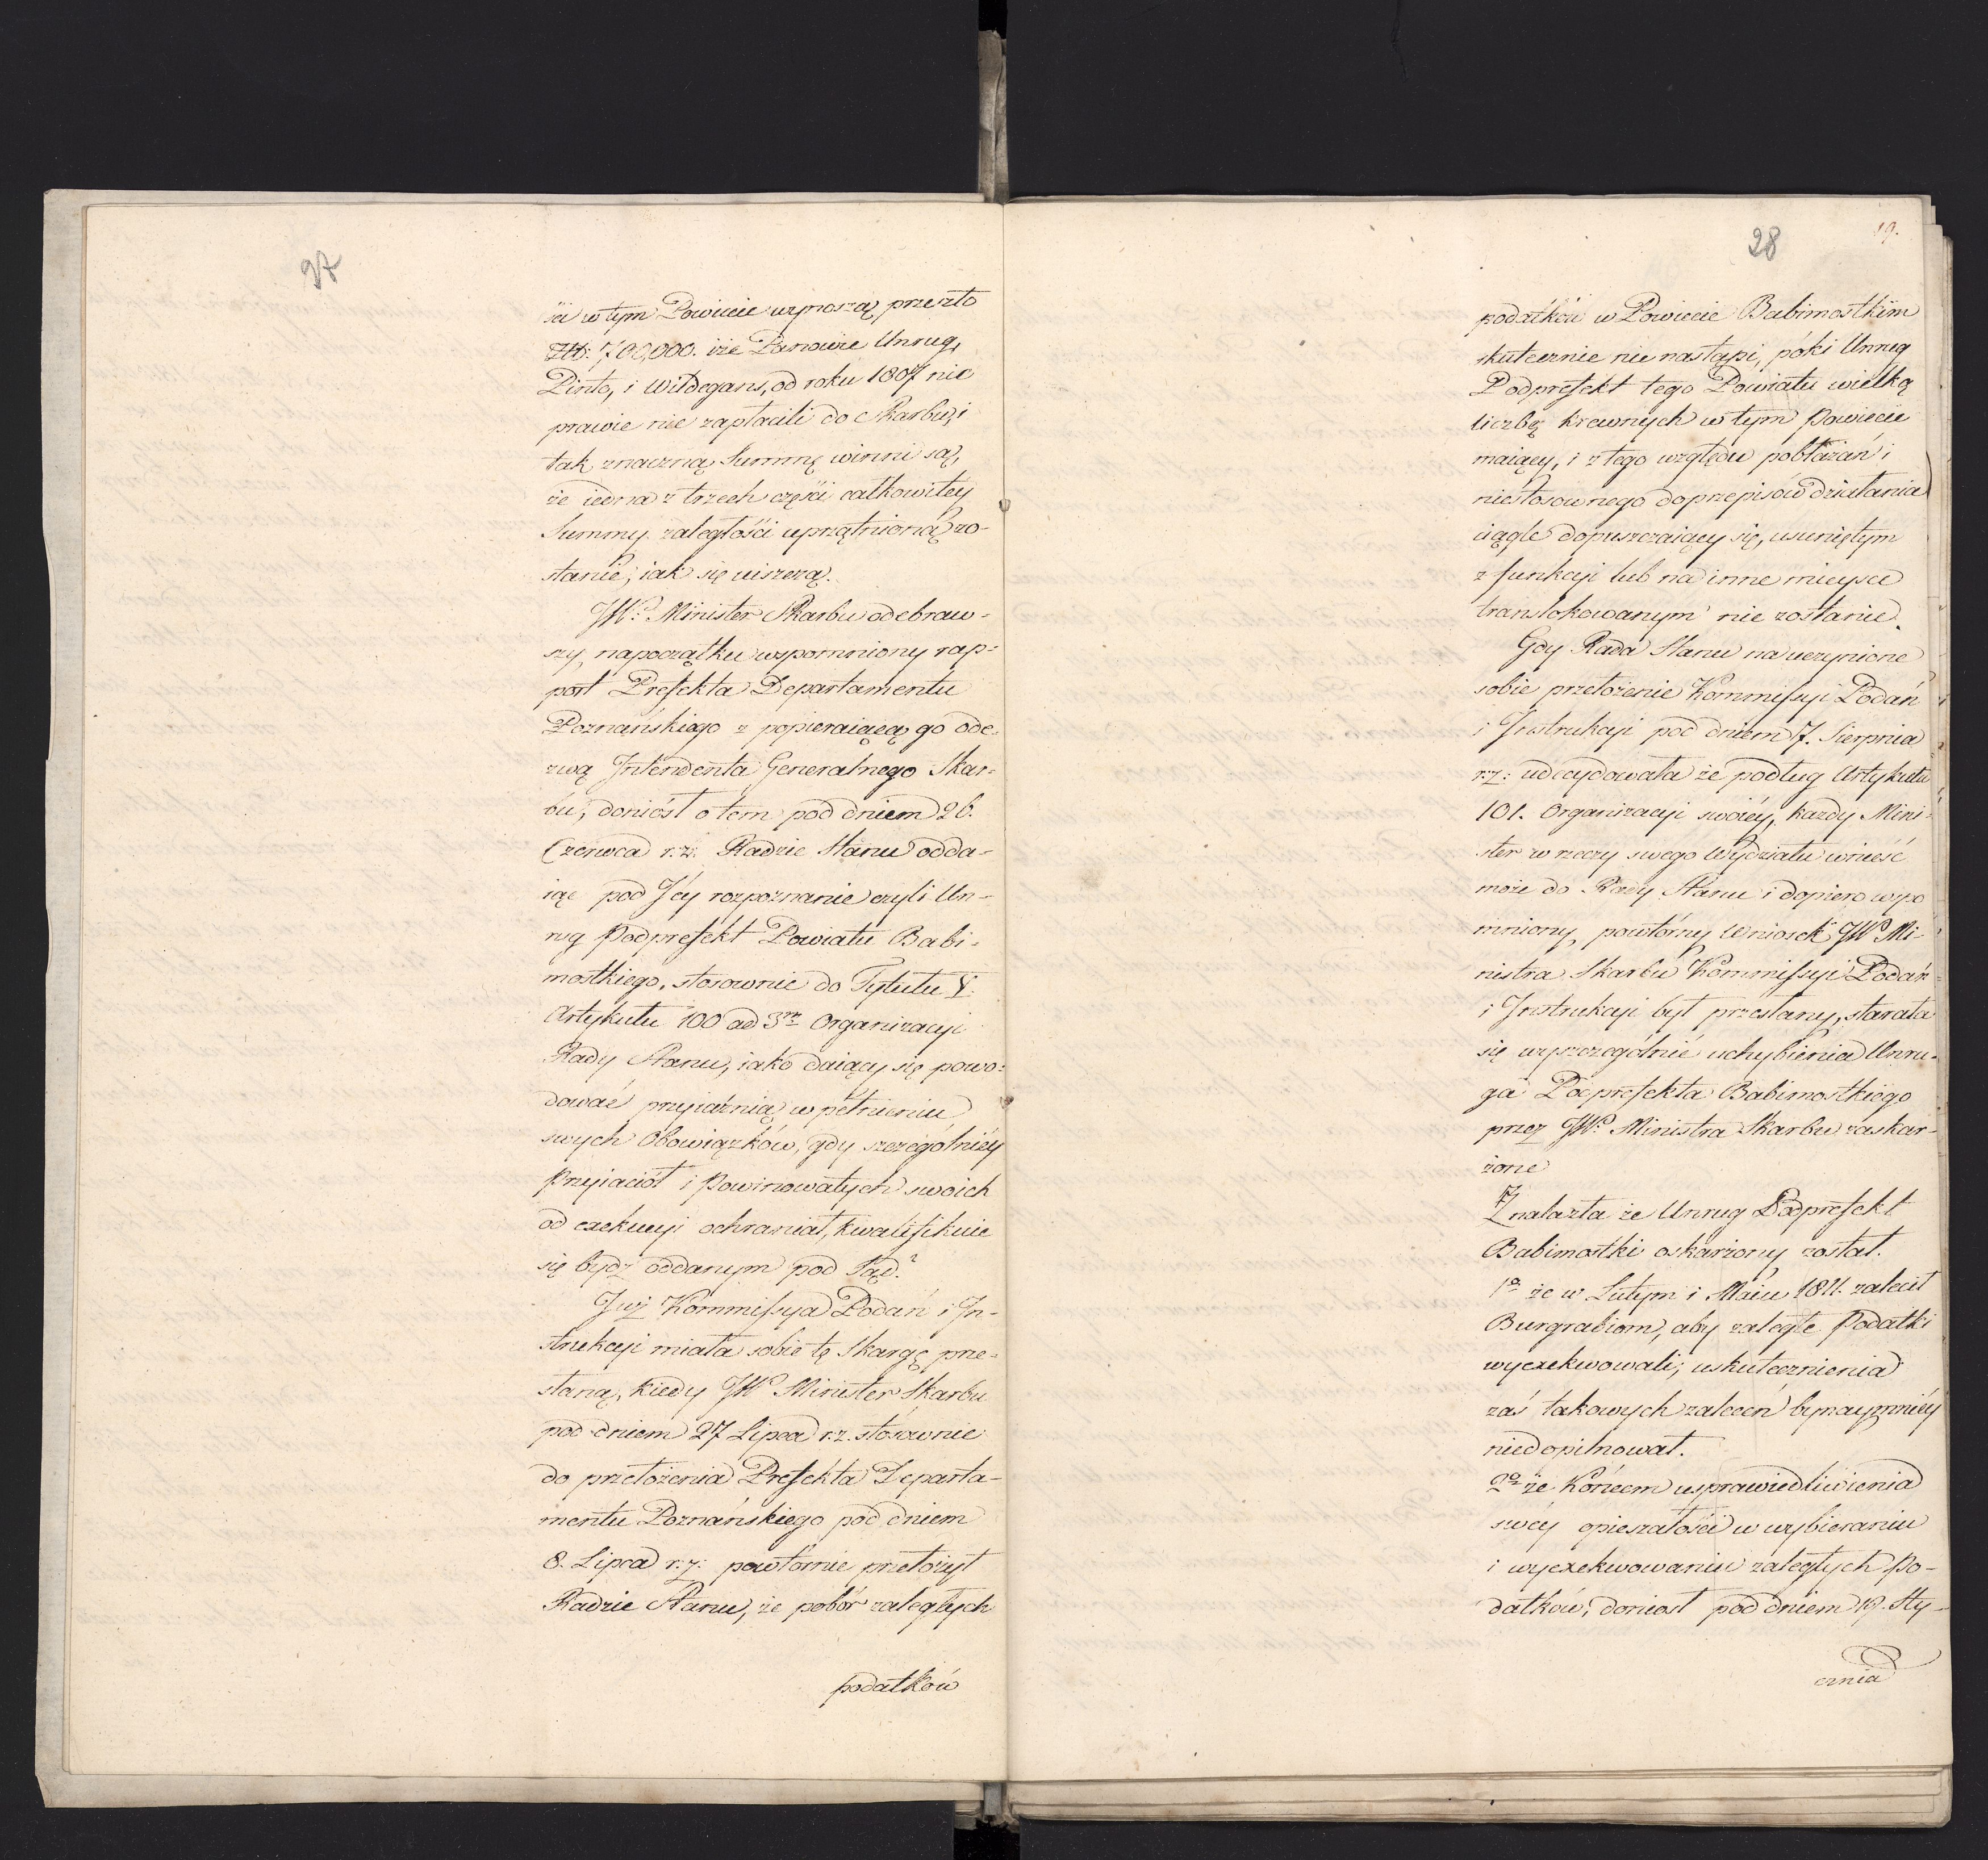 27
ści w tym Powiecie wynoszą przeszło
Złł: 700,000. iże Panowie Unrug,
Pinto, i Wildegans, od roku 1807 nic
prawie nie zapłacili do Skarbu, i
tak znaczną Summę winni są,
że iedna z trzech części całkowitey
Summy zaległości uprzątnioną zo-
stanie, iak się uiszczą.
JW: Minister Skarbu odebraw-
szy, na początku wspomniony rap-
port Prefekta Departamentu
Poznańskiego z popieraiącą go ode-
zwą Intendenta Generalnego Skar-
bu, doniósł o tem pod dniem 26.
Czerwca r. z. Radzie Stanu odda-
iąc pod Jey rozpoznanie czyli Un-
rug Podprefekt Powiatu Babi-
mostkiego, stosownie do Tytułu V.
Artykułu 100 ad 3m Organizacyi
Rady Stanu, iako daiący się powo-
dować przyiaźnią w pełnieniu
swych Obowiązków, gdy szczególniéy
Przyiaciół i Powinowatych swoich
od exekucyi ochraniał, kwalifikuie
się bydź oddanym pod Sąd.?
Już Kommissya Podań i In-
strukcyi miała sobie tę Skargę prze-
słaną, kiedy JW Minister Skarbu
pod dniem 27 Lipca r. z. stosownie
do przełożenia Prefekta Departa-
mentu Poznańskiego pod dniem
8. Lipca r: z: powtórnie przełożył
Radzie Stanu, że pobór zaległych
podatków
28
19.
podatków w Powiecie Babimostkim
skutecznie nie nastąpi, póki Unrug
Podprefekt tego Powiatu wielką
liczbę krewnych w tym Powiecie
maiący, i z tego względu pobłażań i
niestosownego do przepisów działania
ciągle dopuszczaiący się, usuniętym
z funkcyi lub na inne mieysce
translokowanym nie zostanie.
Gdy Rada Stanu na uczynione
sobie przełożenie Kommissyi Podań
i Instrukcyi pod dniem 7. Sierpnia
r: z: udecydowała że podług Artykułu
101. Organizacyi swoiéy, każdy Mini-
ster w rzeczy swego Wydziału wnieść
może do Rady Stanu i dopiero wspo
mniony, powtórny Wniosek JW Mi-
nistra Skarbu Kommissyi Podań
i Instrukcyi był przesłany, starała
się wyszczególnić uchybienia Unru-
ga Podprefekta Babimostkiego
przez JW: Ministra Skarbu zaskar-
żone
Znalazła że Unrug Podprefekt
Babimostki oskarżony został.
1o że w Lutym i Maiu 1811. zalecił
Burgrabiom, aby zaległe Podatki
wyexekwowali; uskutecznienia
zaś takowych zaleceń bynaymniéy
niedopilnował.
2o że końcem usprawiedliwienia
swéy opieszałości w wybieraniu
i wyexekwowaniu zaległych Po-
datków, doniosł pod dniem 19. Sty-
cznia